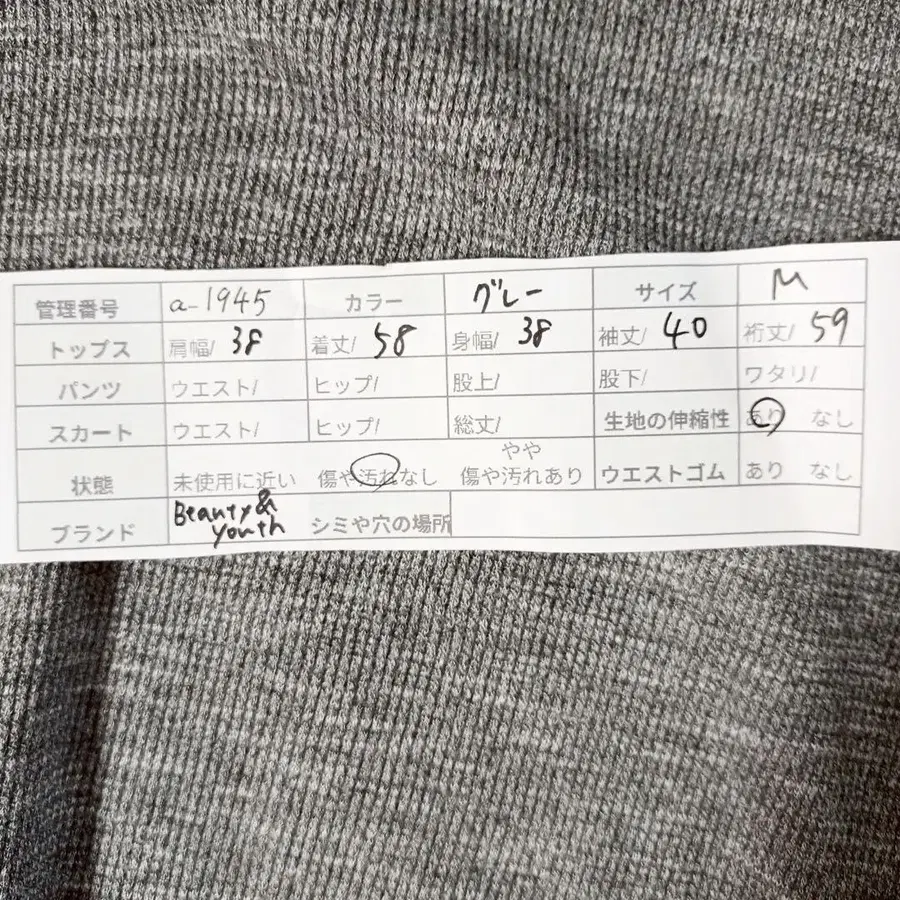 管理番号 a-1945 カラー グレー サイズ M
トップス 肩幅/ 38 着丈/ 58 身幅/ 38 袖丈/ 40 裄丈/ 59
パンツ ウエスト/ ヒップ/ 股上/ 股下/ ワタリ/
スカート ウエスト/ ヒップ/ 総丈/ 生地の伸縮性 あり なし
状態 未使用に近い 傷や汚れなし やや傷や汚れあり ウエストゴム あり なし
ブランド Beauty& Youth シミや穴の場所